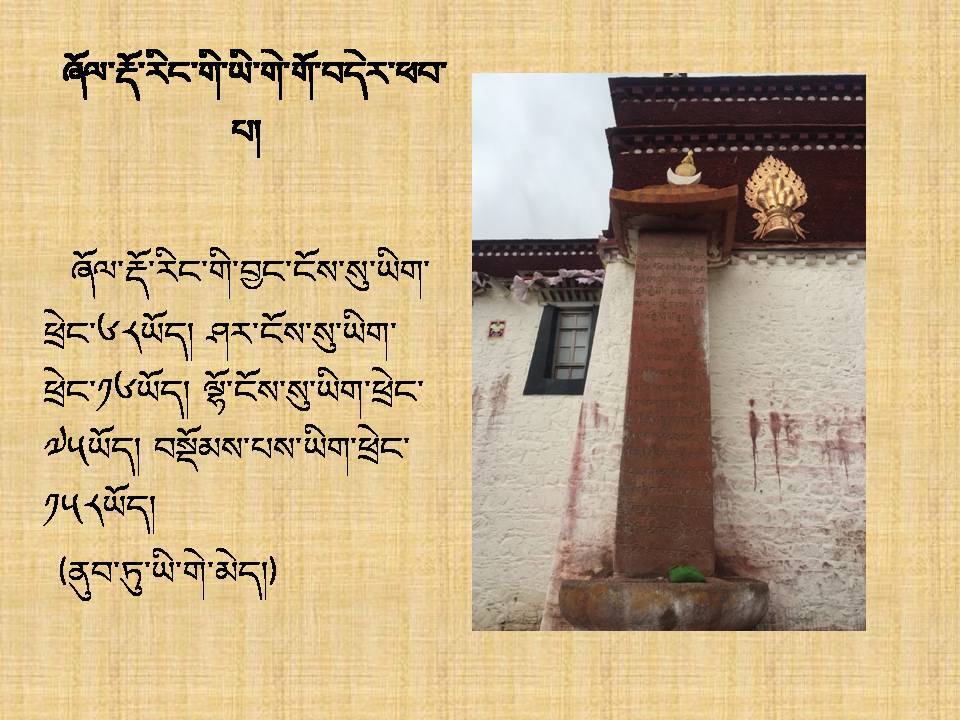 ཞོལ་རྡོ་རིང་གི་ཡི་གེ་གོ་བདེར་ཕབ་
པ།
ཞོལ་རྡོ་རིང་གི་བྱང་ངོས་སུ་ཡིག་
ཕྲེང་༦༨ཡོད། ཤར་ངོས་སུ་ཡིག་
ཕྲེང་༡༦ཡོད། ལྷོ་ངོས་སུ་ཡིག་ཕྲེང་
༧༥ཡོད། བསྡོམས་པས་ཡིག་ཕྲེང་
༡༥༨ཡོད།
(ནུབ་ཏུ་ཡི་གེ་མེད།)